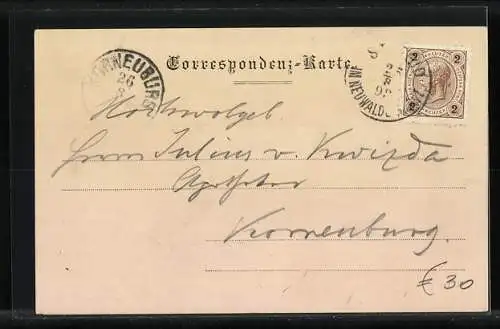 Correspondenz-Karte.
KORNEUBURG
26
2
2
2
2
NEUWALDEGG
Hochwolgeb.
Herrn Julius v. Kwizda
Apotheker
Korneuburg.
€ 30